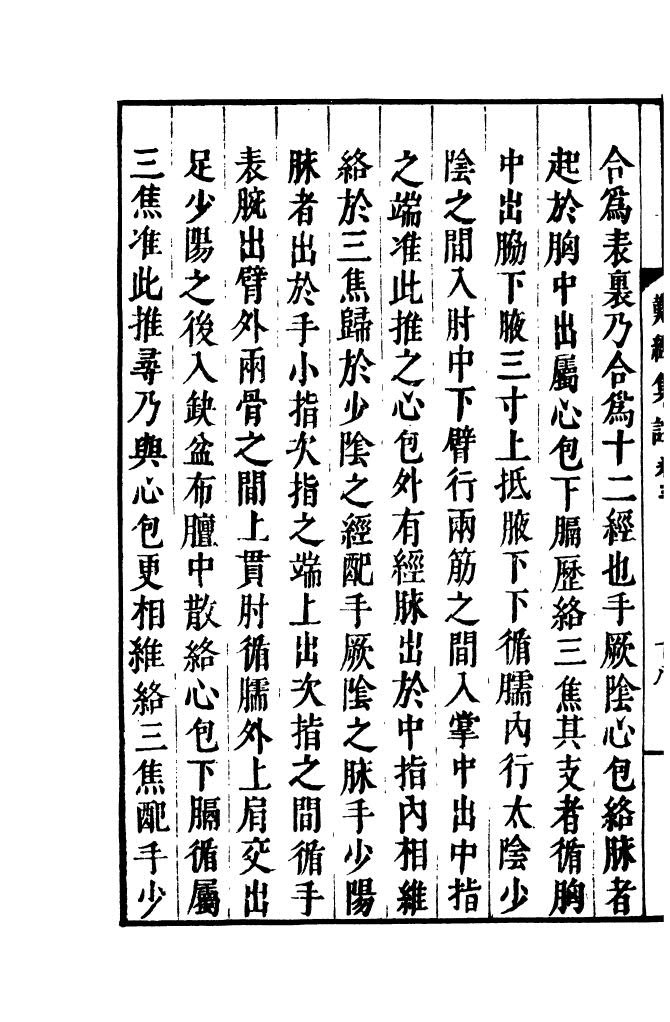 難經集註
合爲表裏乃合爲十二經也手厥隂心包絡脉者
起於胸中出屬心包下膈歷絡三焦其支者循胸
中出脇下腋三寸上抵腋下下循臑內行太陰少
陰之間入肘中下臂行兩筋之間入掌中出中指
之端准此推之心包外有經脉出於中指內相維
絡於三焦歸於少陰之經配手厥隂之脉手少陽
脉者出於手小指次指之端上出次指之間循手
表腕出臂外兩骨之間上貫肘循臑外上肩交出
足少陽之後入缺盆布膻中散絡心包下膈循屬
三焦准此推尋乃與心包更相維絡三焦配手少